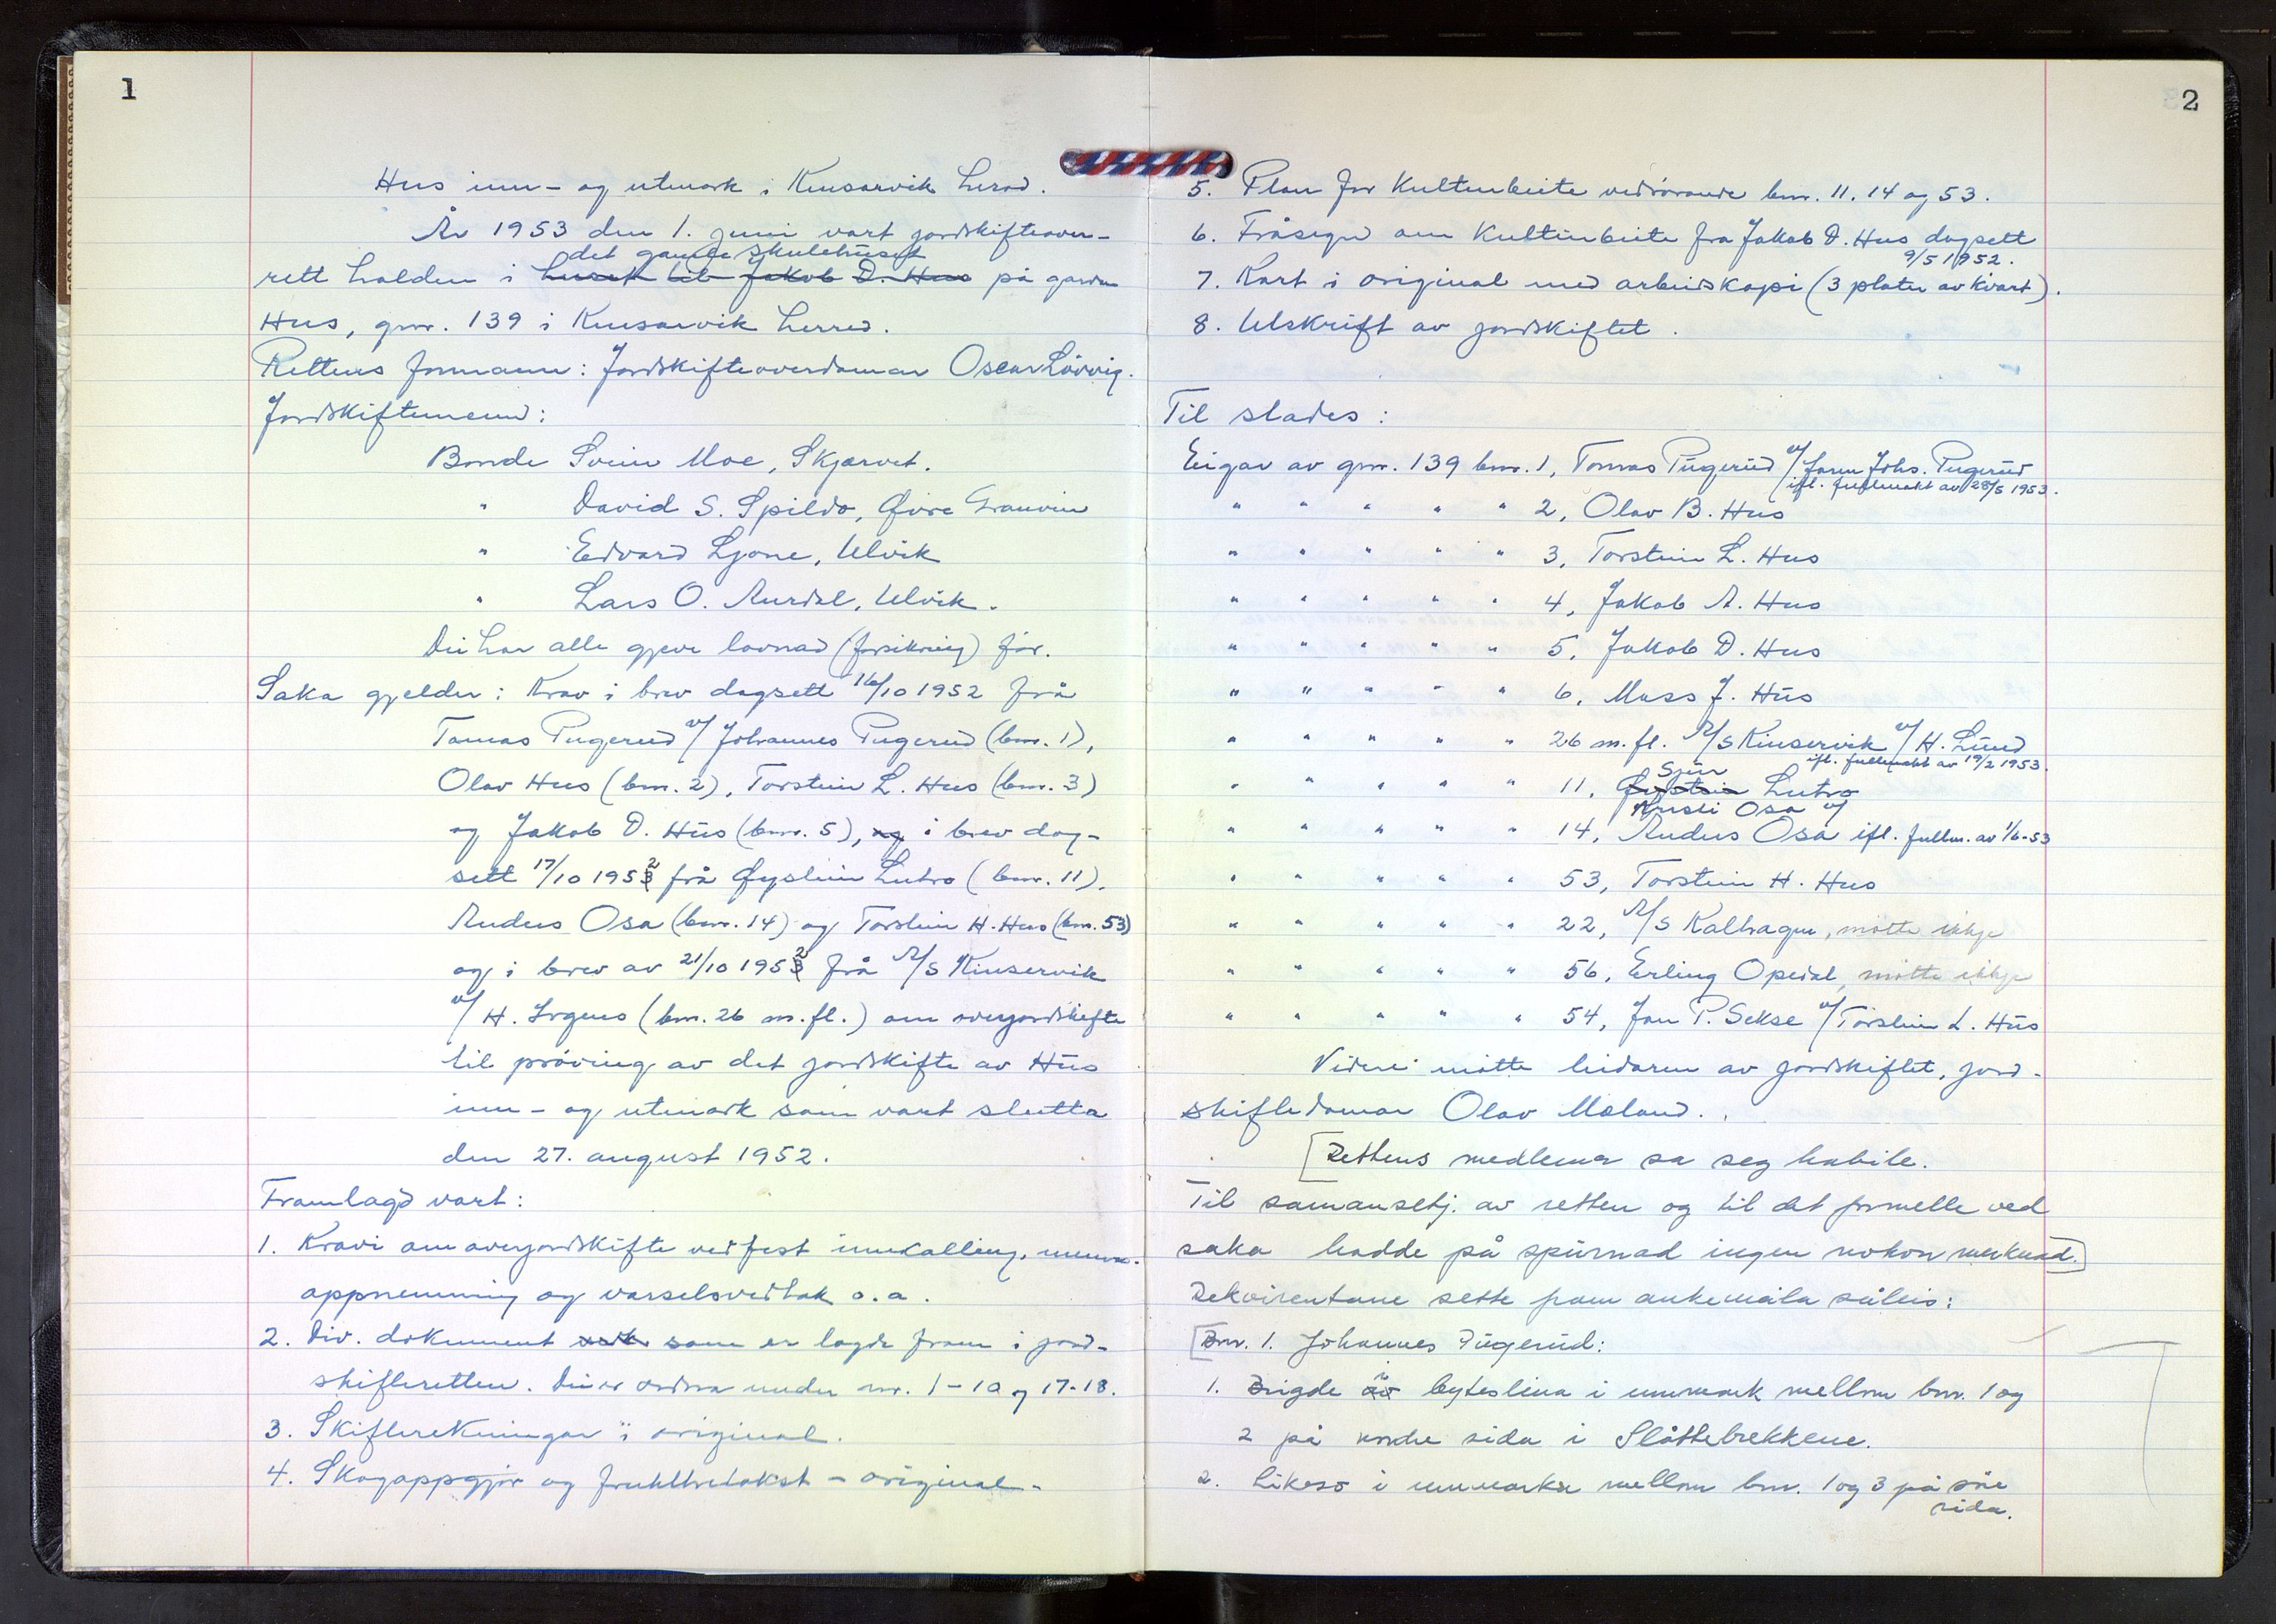 1
Hus inn- og utmark i Kinsarvik herad.
År 1953 den 1. juni vart jordskifteover-
det gamle skulehuset
rett halden i huset til Jakob D. Hus på garden
Hus, gnr. 139 i Kinsarvik herred.
Rettens formann: Jordskifteoverdomar Oscar Lövvig.
Jordskiftemenn:
Bonde Svein Moe, Skjervet.
" David S. Spildo, Øvre Granvin
" Edvard Ljone, Ulvik
" Lars O. Aurdal, Ulvik.
Dei har alle gjeve lovnad (forsikring) för.
Saka gjelder: Krav i brev dagsett 16/10 1952 frå
Tomas Pugerud v/ Johannes Pugerud (bnr. 1),
Olav Hus (bnr. 2), Torstein L. Hus (bnr. 3)
og Jakob D. Hus (bnr. 5), og i brev dag-
sett 17/10 1952 frå Øystein Lutro (bnr. 11),
Anders Osa (bnr. 14) og Torstein H. Hus (bnr. 53)
og i brev av 21/10 1952 frå A/S Kinservik
v/ H. Irgens (bnr. 26 m.fl.) om overjordskifte
til pröving av det jordskifte av Hus
inn- og utmark som vart slutta
den 27. august 1952.
Framlagd vart:
1. Kravi om overjordskifte vedfest innkalling,
oppnemning og varselsvedtak o.a.
2. Div. dokument som er lagde fram i jord-
skifteretten. Dei er ordna under nr. 1-10 og 17-18.
3. Skifterekningar i original.
4. Skogoppgjör og frukttretakst - original.
2
5. Plan for Kulturbeite vedrörande bnr. 11, 14 og 53.
6. Fråsegn om Kulturbeite fra Jakob D. Hus dagsett
9/5 1952.
7. Kart i original med arbeidskopi (3 plater av kvart).
8. Utskrift av jordskiftet.
Til stades:
Eigar av gnr. 139 bnr. 1, Tomas Pugerud v/ faren Johs. Pugerud
ifl. fullmakt av 28/5 1953.
" " " " " 2, Olav B. Hus
" " " " " 3, Torstein L. Hus
" " " " " 4, Jakob A. Hus
" " " " " 5, Jakob D. Hus
" " " " " 6, Mass J. Hus
" " " " " 26 m.fl. A/S Kinservik v/ H. Lund
ifl. fullmakt av 19/2 1953.
Sjur
" " " " " 11, Øystein Lutro
Kristi Osa v/
" " " " " 14, Anders Osa ifl. fullm. av 1/6-53
" " " " " 53, Torstein H. Hus
" " " " " 22, A/S Kalhagen, mötte ikkje
" " " " " 56, Erling Opedal, mötte ikkje
" " " " " 54, Jon P. Sekse v/ Torstein L. Hus
Videre mötte leidaren av jordskiftet, jord-
skiftedomar Olav Mæland.
[Rettens medlemer sa seg habile.
Til samansetj. av retten og til det formelle ved
saka hadde på spurnad ingen nokon merknad.]
Rekvirentane sette fram ankemåla såleis:
[Bnr. 1. Johannes Pugerud:
1. Brigde av i byteslina i innmark mellom bnr. 1 og
2 på nordre sida i Slåttebrekkene.
2. Likeso i innmarka mellom bnr. 1 og 3 på söre
sida.